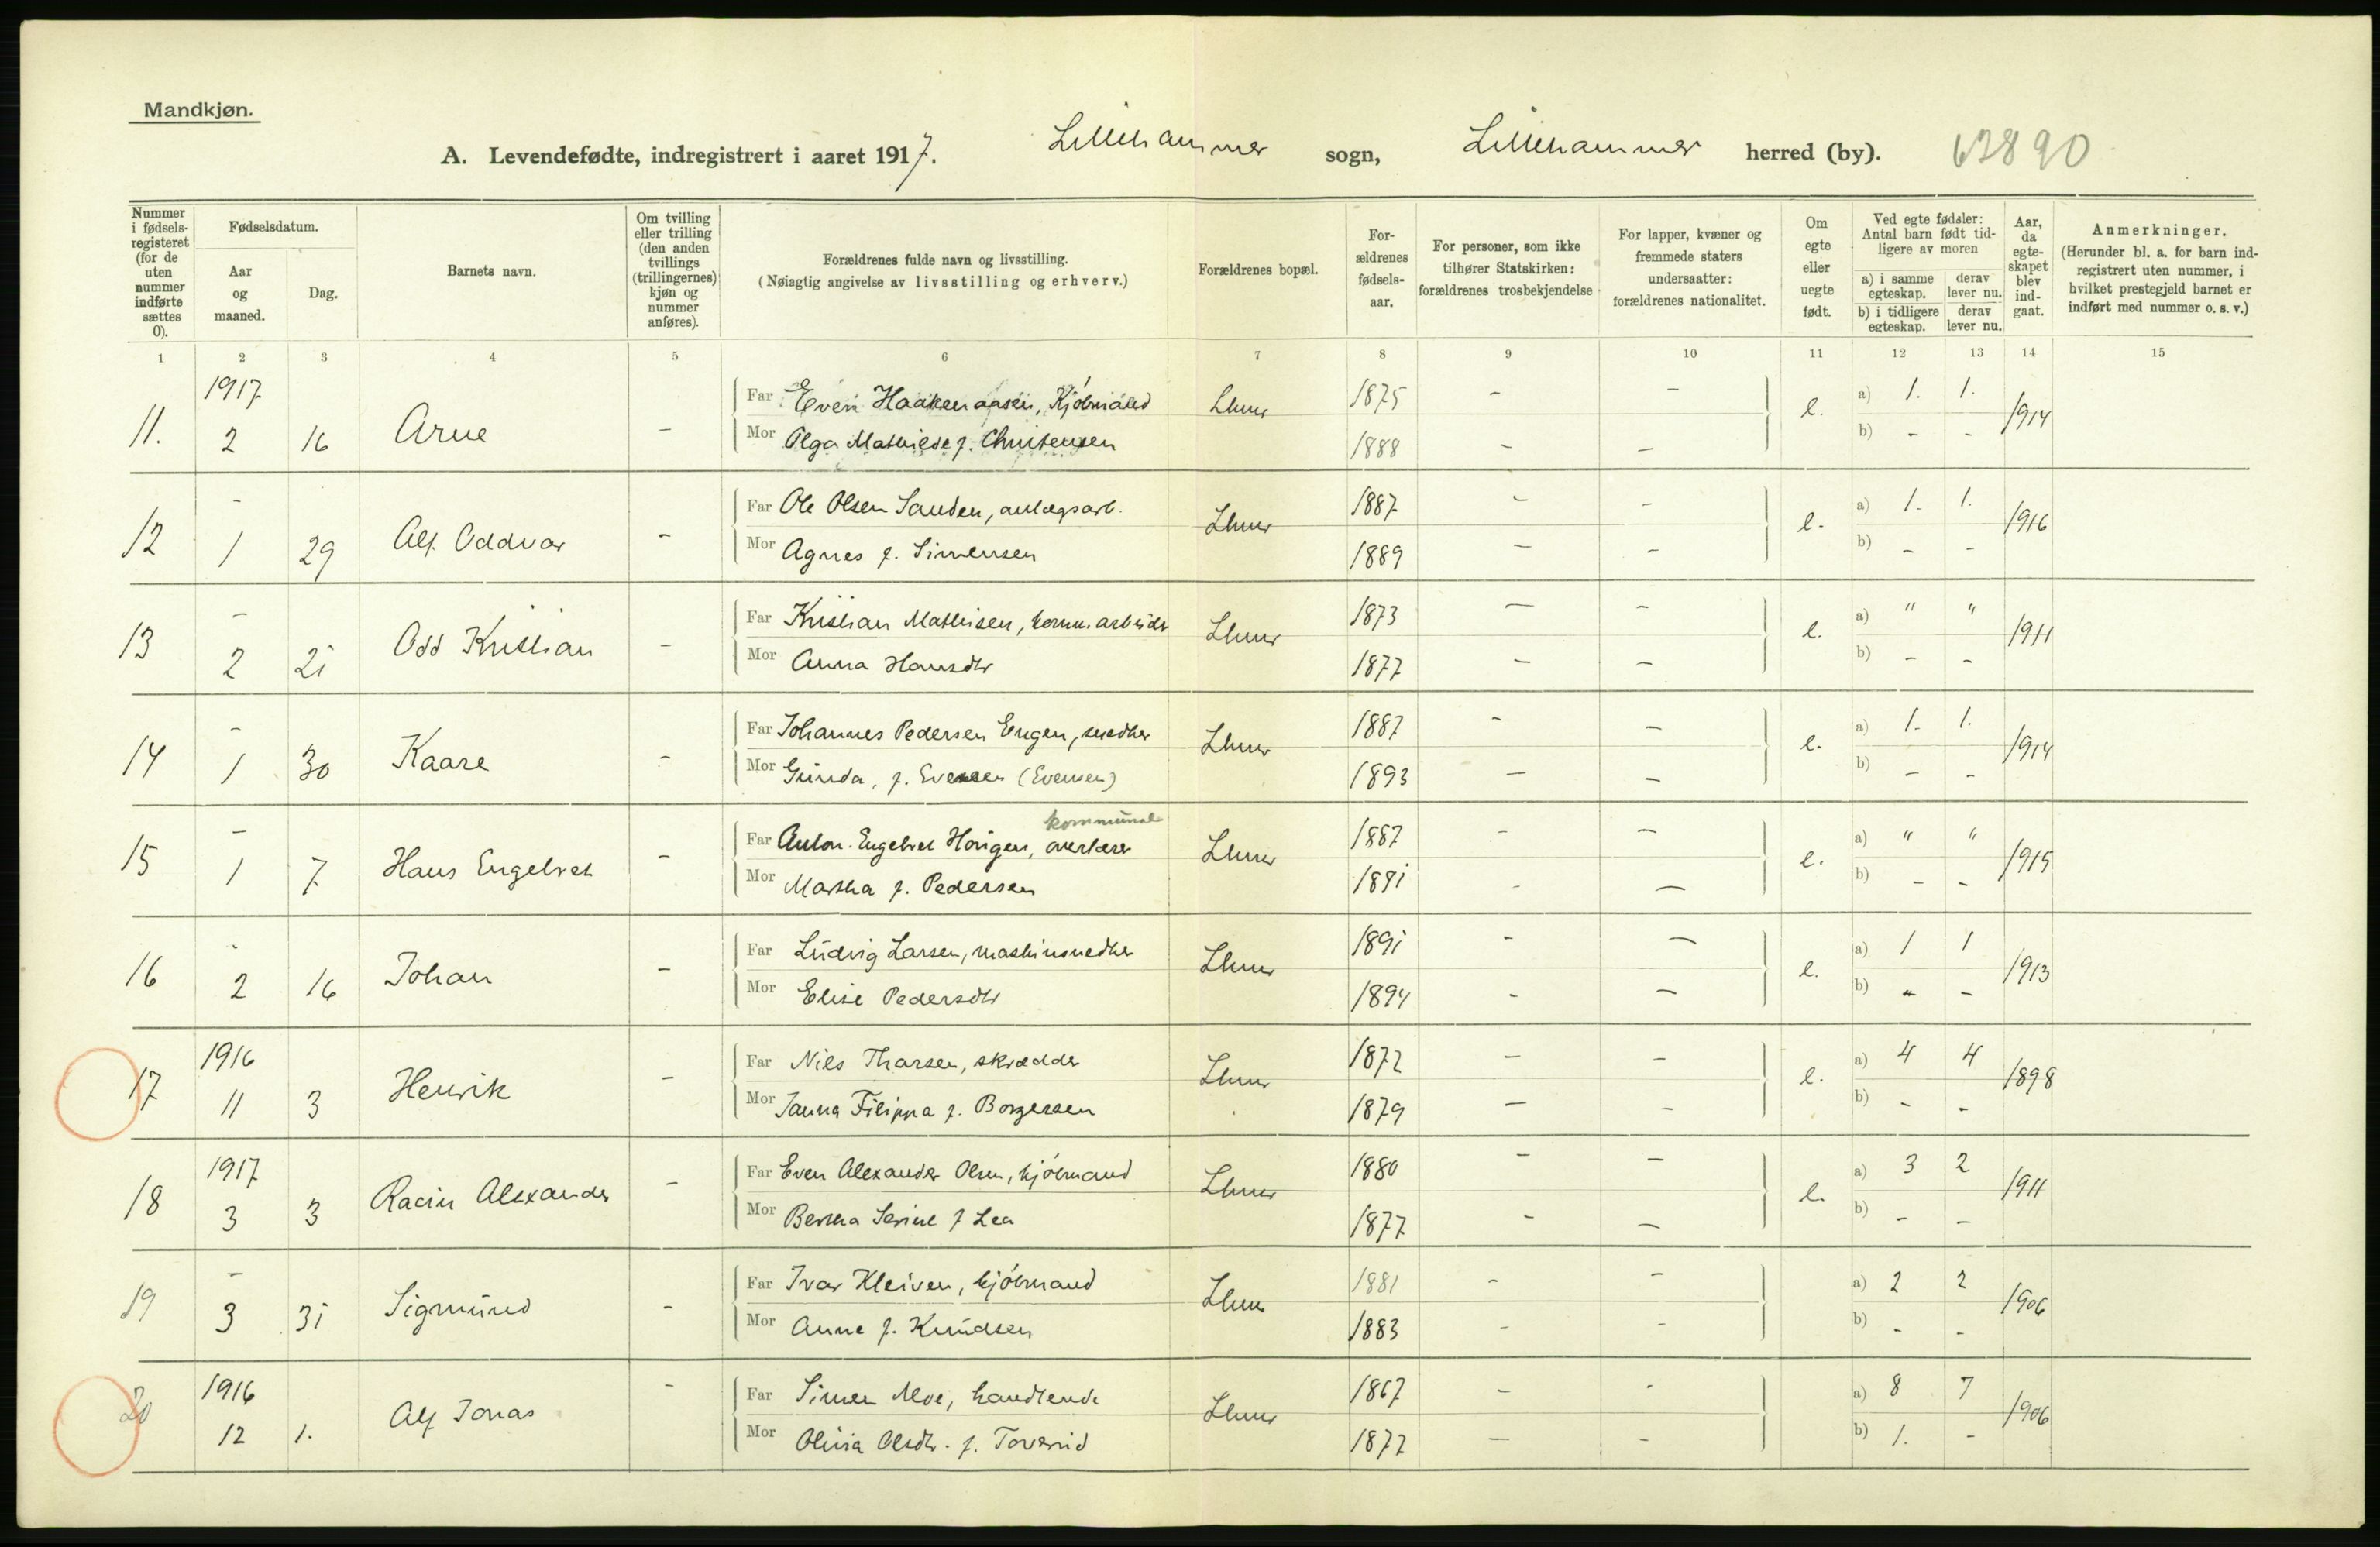 Mandkjøn.
A. Levendefødte, indregistrert i aaret 1917. Lillehammer sogn, Lillehammer herred (by). 62890
Nummer i fødsels-registeret (for de uten nummer indførte sættes 0).
Fødselsdatum.
Aar og maaned.
Dag.
Barnets navn.
Om tvilling eller trilling (den anden tvillings (trillingernes) kjøn og nummer anføres).
Forældrenes fulde navn og livsstilling.
(Nøiagtig angivelse av livsstilling og erhverv.)
Forældrenes bopæl.
For-ældrenes fødsels-aar.
For personer, som ikke tilhører Statskirken: forældrenes trosbekjendelse
For lapper, kvæner og fremmede staters undersaatter: forældrenes nationalitet.
Om egte eller uegte født.
Ved egte fødsler: Antal barn født tid-ligere av moren
a) i samme egteskap. derav lever nu.
b) i tidligere egteskap. derav lever nu.
Aar, da egte-skapet blev ind-gaat.
Anmerkninger.
(Herunder bl. a. for barn ind-registrert uten nummer, i hvilket prestegjeld barnet er indført med nummer o. s. v.)
1 2 3 4 5 6 7 8 9 10 11 12 13 14 15
1917 Far Even Haakenaasen, Kjøbmand Lhmr 1875 - - e. a) 1. 1. 1914
11. 2 16 Arne - Mor Olga Mathilde f. Christensen 1888 - - b) - -
- Far Ole Olsen Sanden, anlægsarb. Lhmr 1887 - - e. a) 1. 1. 1916
12 1 29 Alf Oddvar - Mor Agnes f. Simensen 1889 - - b) - -
- Far Kristian Mathisen, komm. arbeider Lhmr 1873 - - e. a) " " 1911
13 2 21 Odd Kristian - Mor Anna Hansdtr 1877 - - b) - -
- Far Johannes Pedersen Engen, snedker Lhmr 1887 - - e. a) 1. 1. 1914
14 1 30 Kaare - Mor Gunda, f. Evensen (Evensen) 1893 - - b) - -
kommunal
- Far Anton Engebret Horigen, overlærer Lhmr 1887 - - e. a) " " 1915
15 1 7 Hans Engebret - Mor Martha f. Pedersen 1891 - - b) - -
- Far Ludvig Larsen, maskinsnedker Lhmr 1891 - - e. a) 1 1 1913
16 2 16 Johan - Mor Elise Pedersdtr 1894 - - b) " -
1916 Far Nils Tharsen, skrædder Lhmr 1872 - - e. a) 4 4 1898
17 11 3 Henrik - Mor Janna Filippa f. Borgersen 1879 - - b) - -
1917 Far Even Alexander Olsen, kjøbmand Lhmr 1880 - - e. a) 3 2 1911
18 3 3 Racin Alexander - Mor Bertha Serine f Lea 1877 - - b) - -
- Far Ivar Kleiven, kjøbmand Lhmr 1881 - - a) 2 2 1906
19 3 31 Sigmund - Mor Anne f. Knudsen 1883 - - b) - -
1916 Far Simen Moe, handlende Lhmr 1867 - - a) 8 7 1906
20 12 1. Alf Jonas - Mor Olivia Olsdtr. f. Toverud 1877 - - b) 1. -